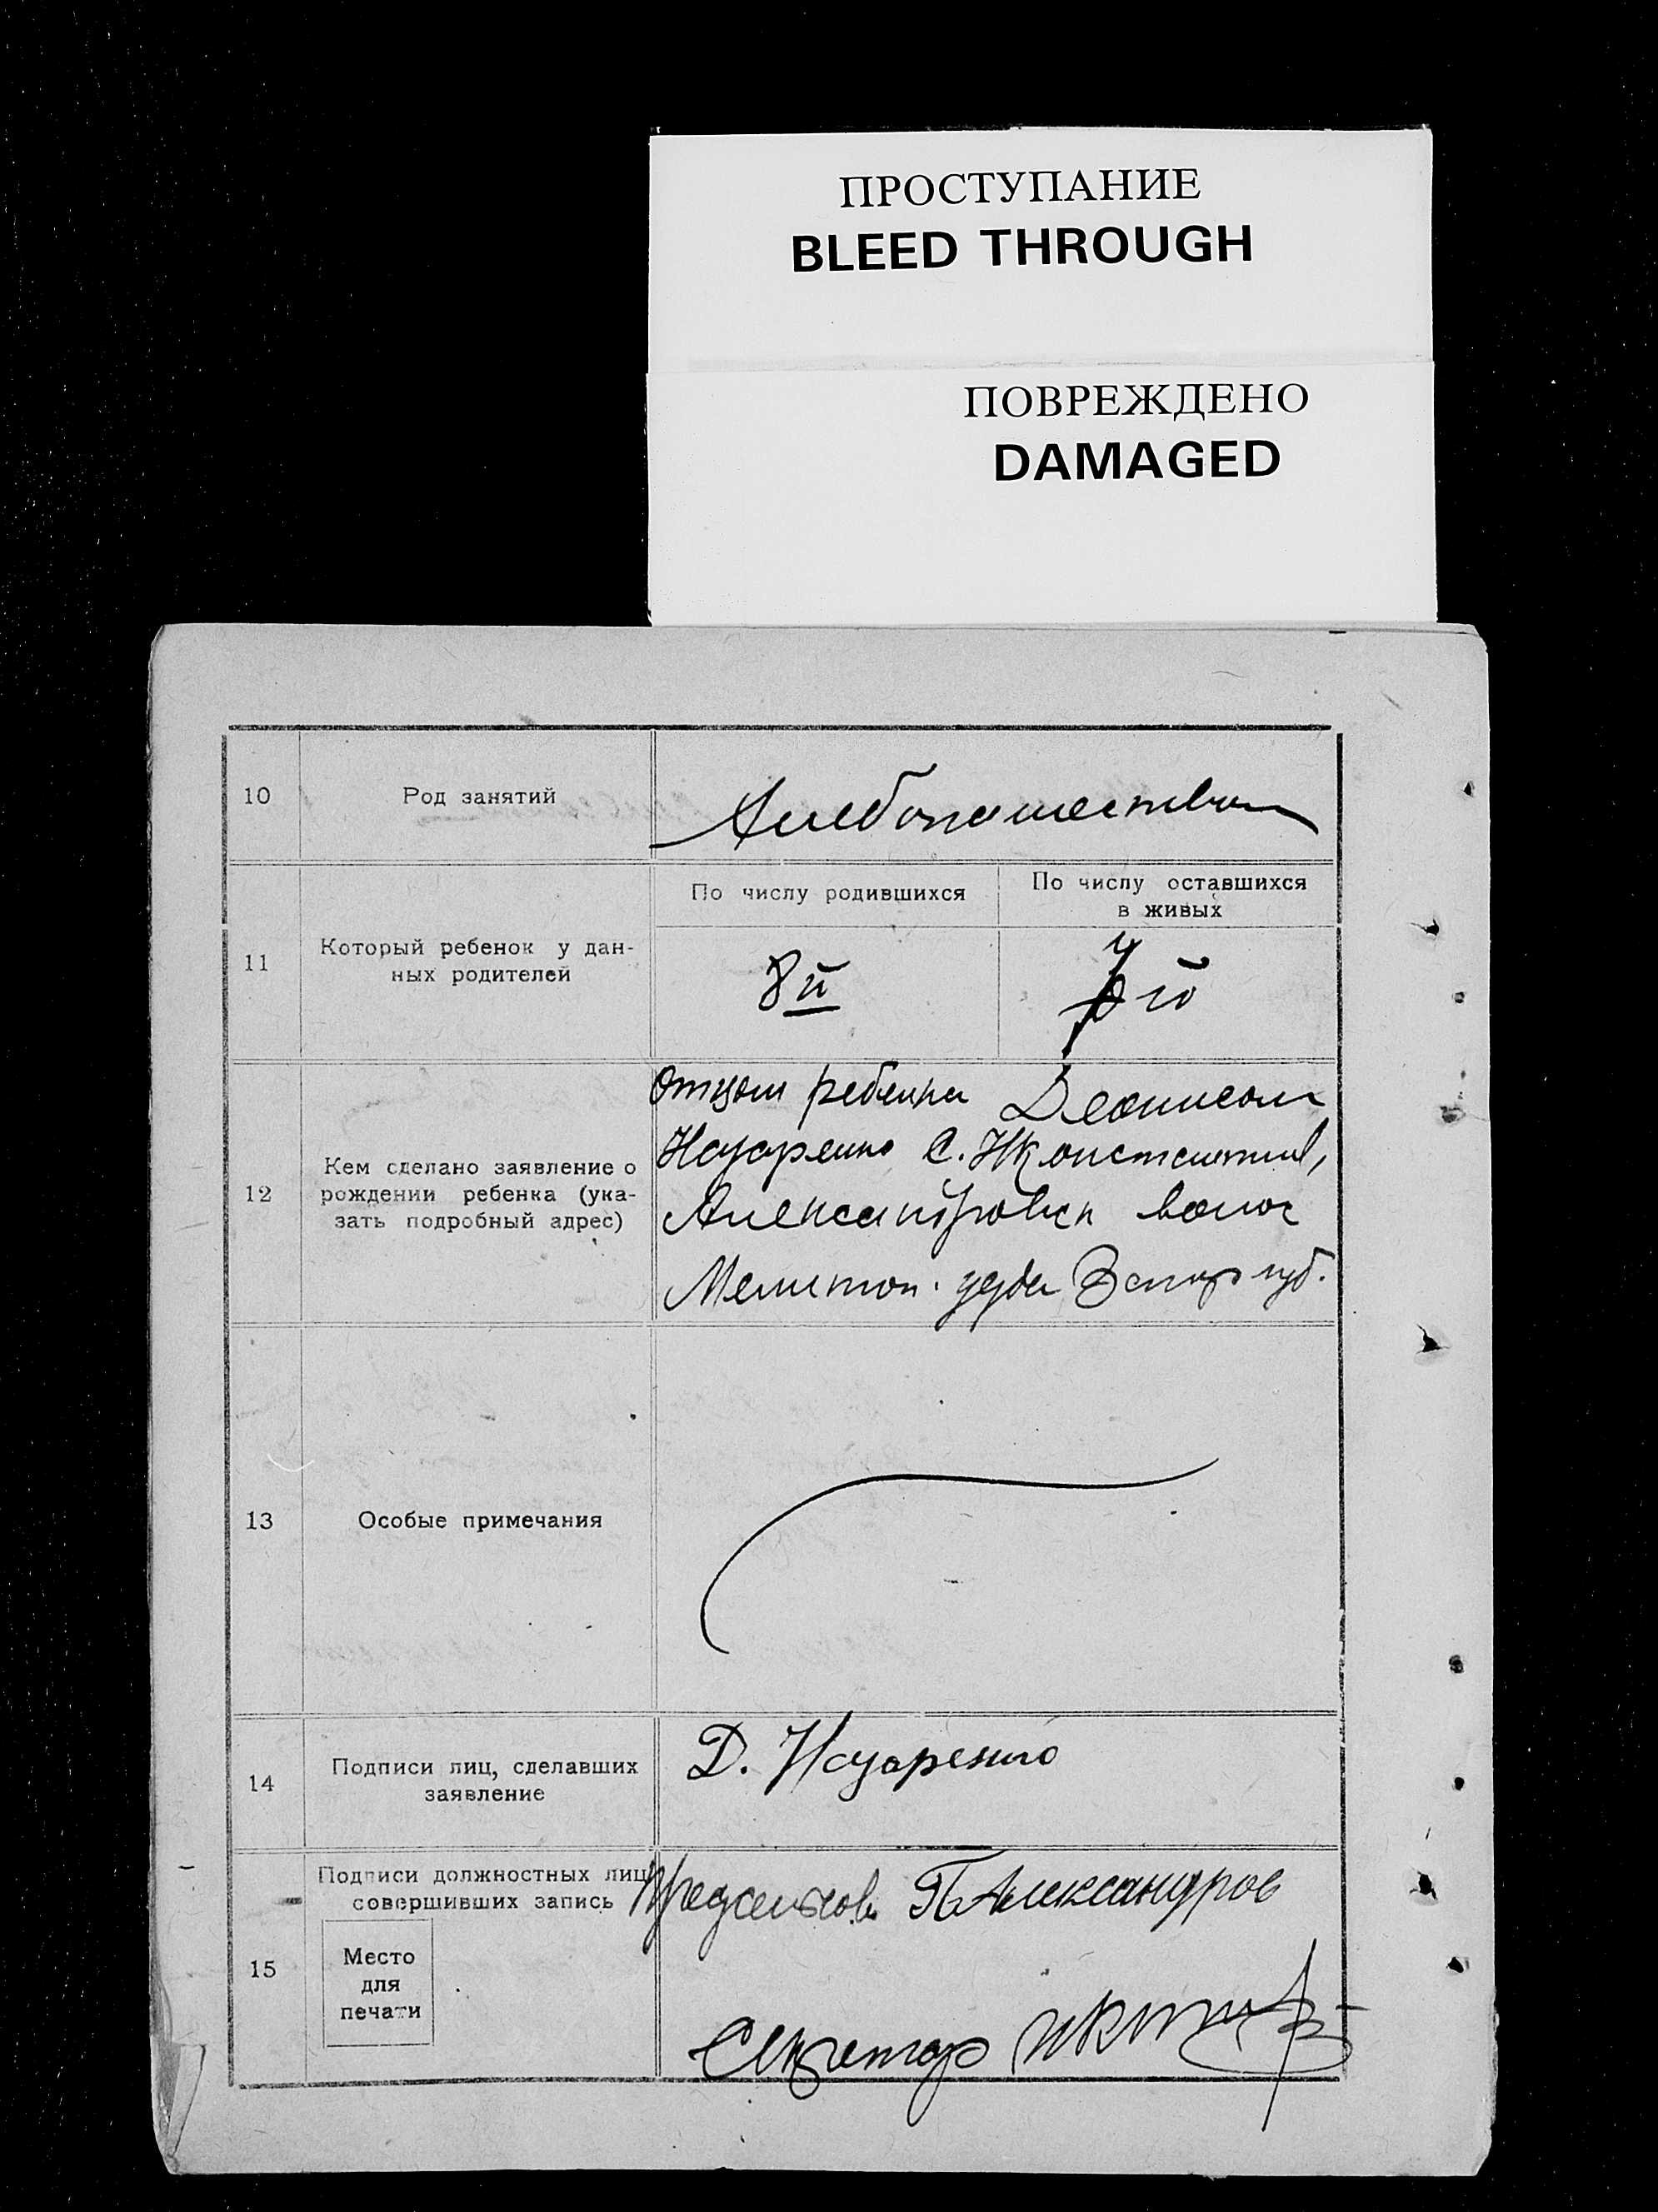 ПРОСТУПАНИЕ
BLEED THROUGH
ПОВРЕЖДЕНО
DAMAGED
10
Род занятий
Хлебопашество
11
Который ребенок у дан-
ных родителей
По числу родившихся
По числу оставшихся
в живых
8й
й
12
Кем сделано заявление о
рождении ребенка (ука-
зать подробный адрес)
Отцом ребенка Денисом
Назаренко С. Н Константинов,
Александровск волос
Мелитоп. уезда Запор губ.
13
Особые примечания
14
Подписи лиц, сделавших
заявление
Д. Назаренко
15
Подписи должностных лиц
совершивших запись
Место
для
печати
П Александров
Секретар